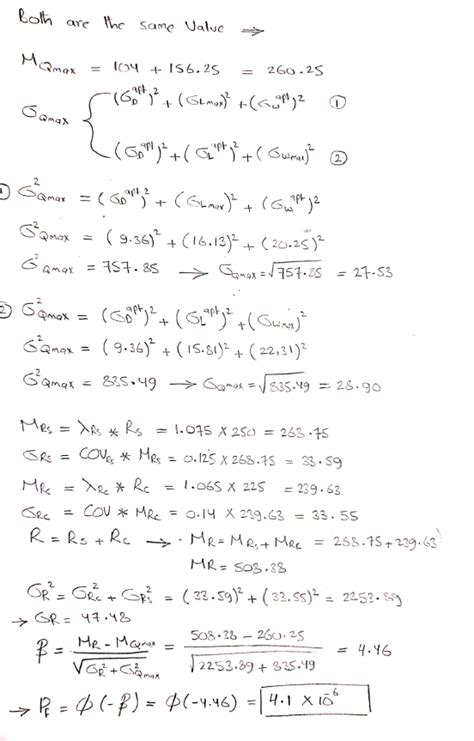 Both are the same value ⇒
M_Qmax = 104 + 156.25 = 260.25
σ_Qmax { (σ_D^apt)² + (σ_Lmax)² + (σ_W^apt)² ①
(σ_D^apt)² + (σ_L^apt)² + (σ_Wmax)² ②
① σ²_Qmax = (σ_D^apt)² + (σ_Lmax)² + (σ_W^apt)²
σ²_Qmax = (9.36)² + (16.13)² + (20.25)²
σ²_Qmax = 757.85 → σ_Qmax = √757.85 = 27.53
② σ²_Qmax = (σ_D^apt)² + (σ_L^apt)² + (σ_Wmax)²
σ²_Qmax = (9.36)² + (15.81)² + (22,31)²
σ²_Qmax = 835.49 → σ_Qmax = √835.49 = 28.90
M_Rs = λ_Rs * R_s = 1.075 × 250 = 268.75
σ_Rs = COV_Rs * M_Rs = 0.125 × 268.75 = 33.59
M_Rc = λ_Rc * R_c = 1.065 × 225 = 239.63
σ_Rc = COV * M_Rc = 0.14 × 239.63 = 33.55
R = R_s + R_c → M_R = M_Rs + M_Rc = 268.75 + 239.63
MR = 508.38
σ_R² = σ²_Rc + σ²_Rs = (33.59)² + (33.55)² = 2253.89
→ σR = 47.48
β = (M_R - M_Qmax) / √(σ_R² + σ²_Qmax) = (508.38 - 260.25) / √(2253.89 + 835.49) = 4.46
→ P_F = Φ(-β) = Φ(-4.46) = 4.1 × 10⁻⁶